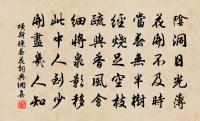 陰洞日光薄
花開不及時
當春無半樹
經燒足空枝
疏與香風會
細將泉影移
此中人到少
開盡幾人知
項斯晚春花詞典網集